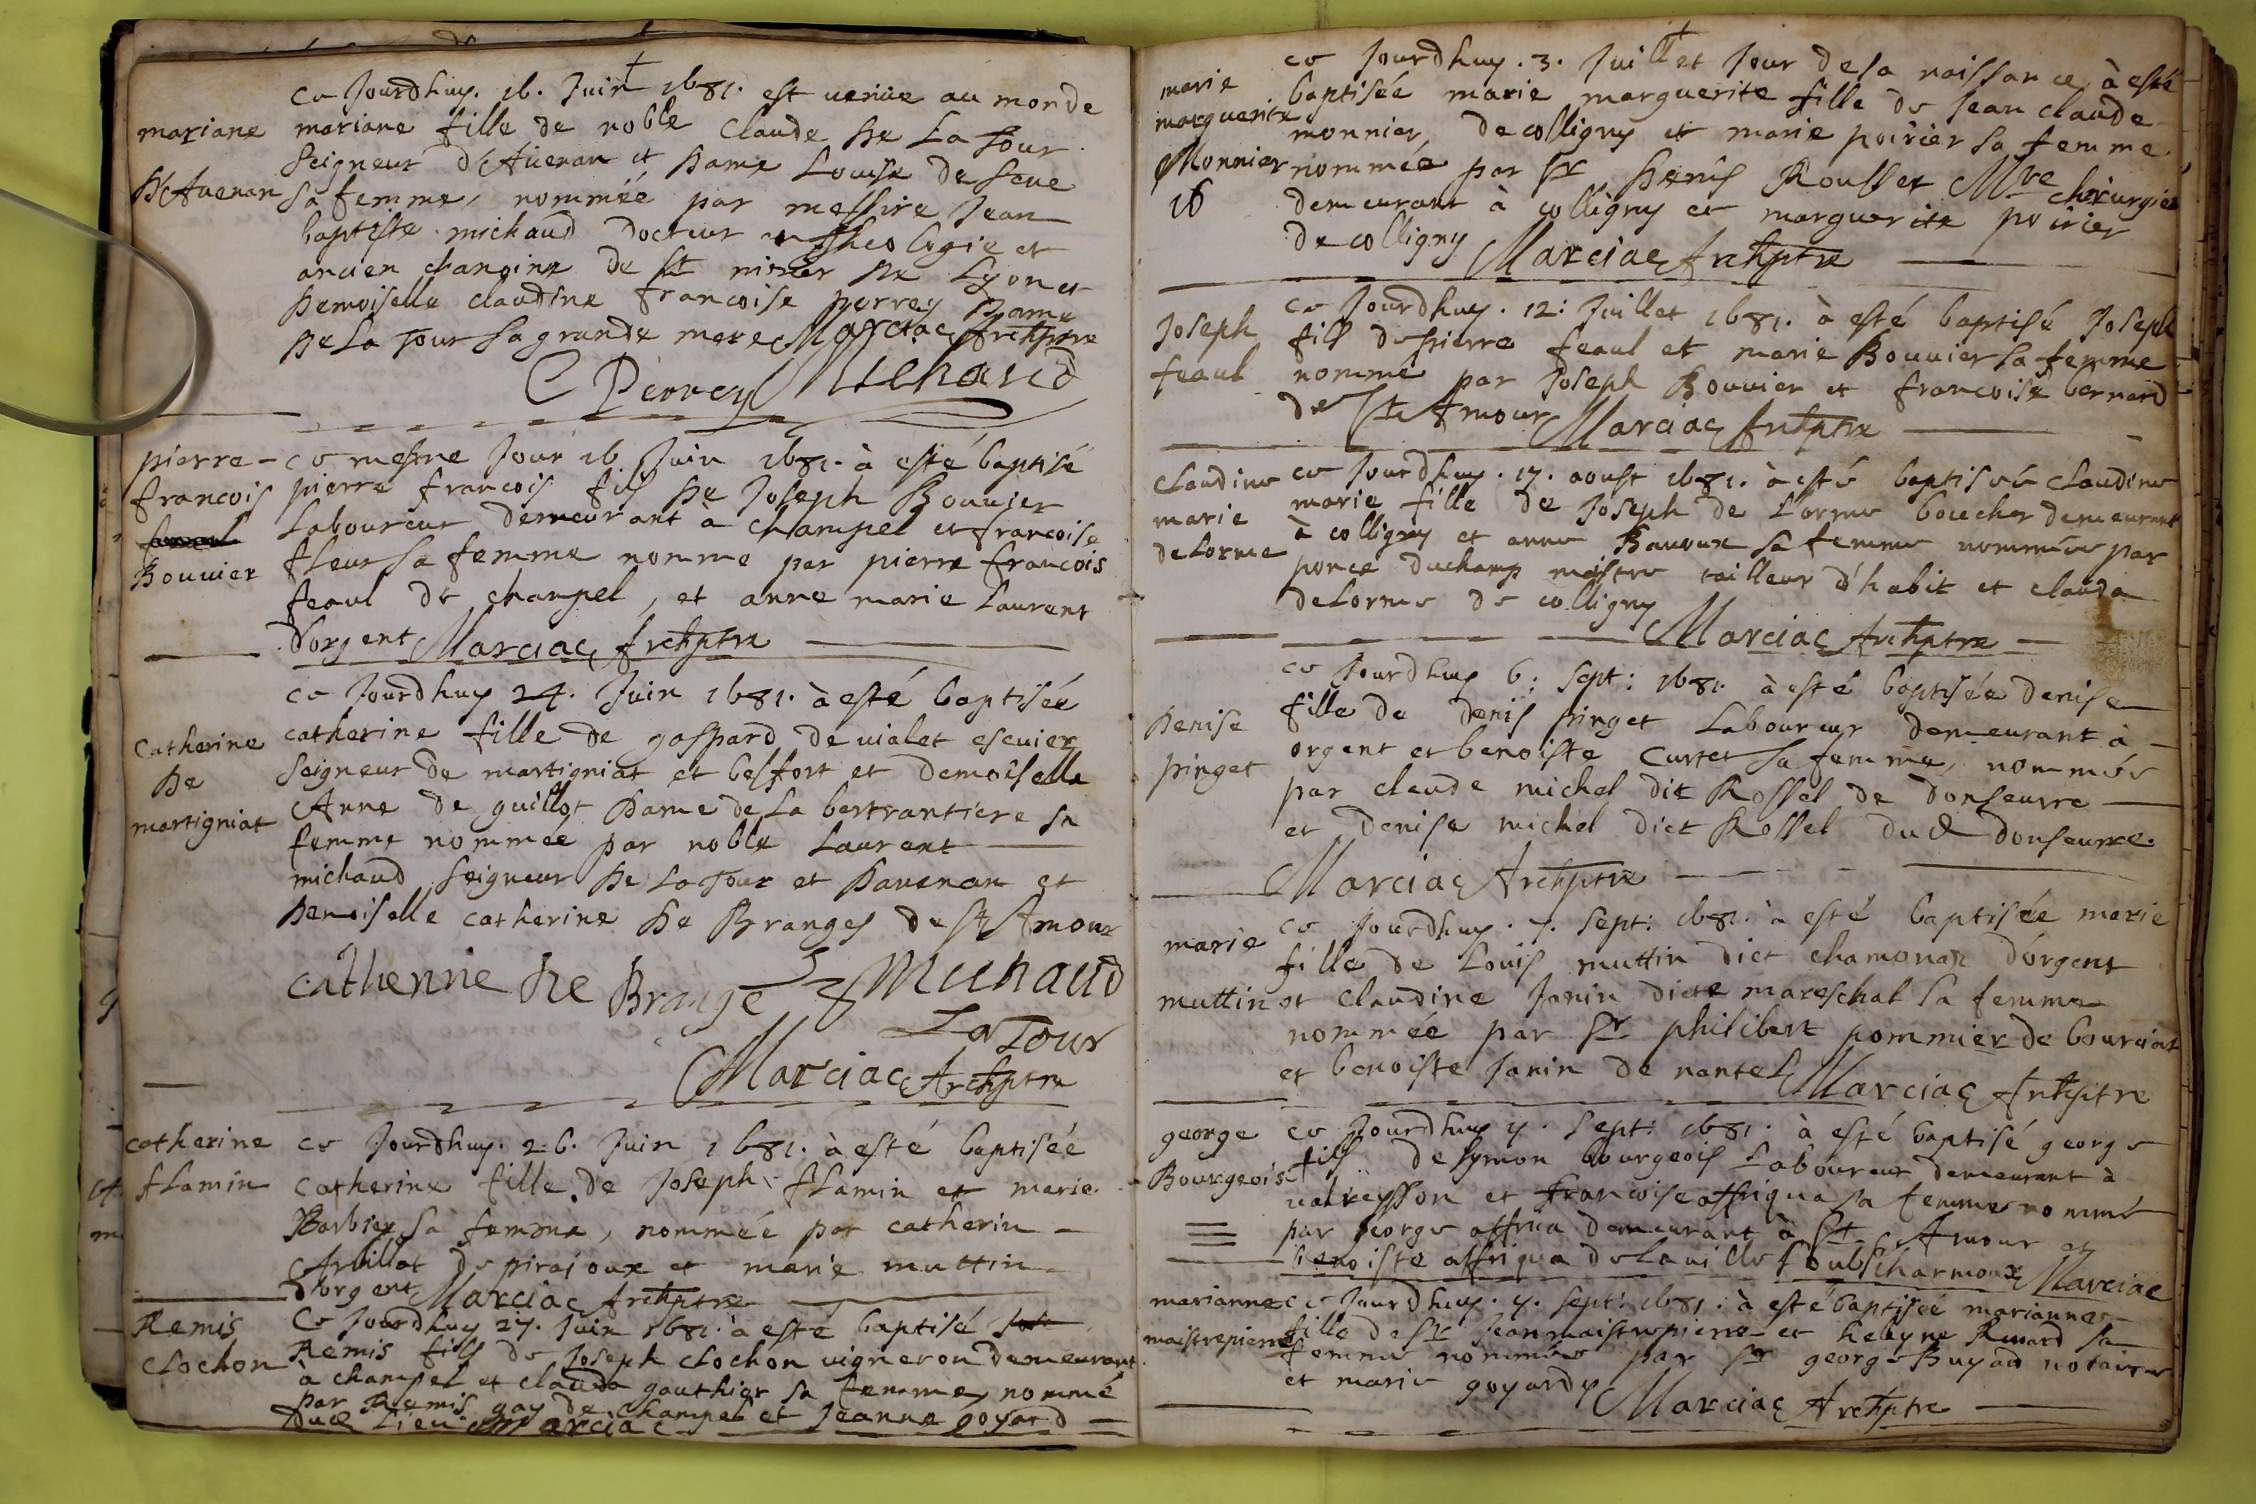 ce Jourdhuy. 16. Juin 1681. est venüe au monde
mariane
mariane fille de noble Claude De La Tour
Seigneur D'Avenan et Dame Louise De Seve
D'Avenan
sa femme, nommée par messire Jean
baptiste michaud Docteur en Theologie et
ancien chanoine de St nizier De Lyon et
Demoiselle claudine francoise perrey Dame
De La Tour sa grande mere Marciac Archptre
C Perrey Michaud
pierre
francois
Bouvier
ce mesme Jour 16 Juin 1681. à esté baptisé
pierre francois fils De Joseph Bouvier
Laboureur demeurant à champel et francoise
fleur sa femme nommé par pierre francois
feaul de champel, et anne marie Laurent
d'orgent Marciac Archptre
ce Jourdhuy 24. Juin 1681. à esté baptisée
Catherine
De
martigniat
catherine fille de gaspard de vialet escuier
Seigneur de martigniat et belfort et demoiselle
Anne de guillot Dame de La bertrantiere sa
femme nommée par noble Laurent
michaud Seigneur De La Tour et Davenan et
Demoiselle catherine De Branges de St Amour
Catherine De Brange Michaud
La Tour
Marciac Archptre
catherine
flamin
ce Jourdhuy. 26. Juin 1681. à esté baptisée
catherine fille de Joseph flamin et marie
Barbier sa femme, nommée par catherin
Arbillat de pirajoux et marie muttin
d'orgent Marciac Archptre
Remis
Clochon
Ce Jourdhuy 27. Juin 1681. à esté baptisé
Remis fils de Joseph Clochon vigneron demeurant
à champel et clauda gauthier sa femme, nommé
par Remis gay de champel et Jeanne goyard
dud Lieu Marciac
marie
marguerite
Monnier
16
ce Jourdhuy. 3. Juillet Jour de sa naissance à esté
baptisée marie marguerite fille de Jean claude
monnier, de colligny et marie poirier sa femme
nommée par Sr Denis Rousset Mre chirurgien
demeurant à colligny et marguerite poirier
de colligny Marciac Archptre
Joseph
feaul
ce Jourdhuy. 12: Juillet 1681. à esté baptisé Joseph
fils de pierre feaul et marie Bouvier sa femme
nommé par Joseph Bouvier et francoise bernard
de St Amour Marciac Archptre
Claudine
marie
de Lorme
ce Jourdhuy. 17. aoust 1681. à esté baptisée Claudine
marie fille de Joseph de Lorme boucher demeurant
à colligny et anne Bauoux sa femme nommée par
ponce duchamp maistre tailleur d'habit et clauda
deLorme de colligny Marciac Archptre
Denise
pinget
ce Jourdhuy 6: sept: 1681. à esté baptisée denise
fille de denis pinget Laboureur demeurant à
orgent et benoiste Curtet sa femme, nommée
par claude michel dit Rossel de donseurre
et denise michel dict Rossel dud donseurre.
Marciac Archptre
marie
muttin
ce Jourdhuy. 7. sept: 1681. à esté baptisée marie
fille de Louis muttin dict chamonar d'orgent
et claudine Janin dicte mareschal sa femme
nommée par Sr philibert pommier de bourciat
et benoiste Janin de nantel Marciac Archptre
george
Bourgeois
ce Jourdhuy 7. sept: 1681. à esté baptisé george
fils de symon bourgeois Laboureur demeurant à
valreysson et francoise affriqua sa femme nommé
par george affriqua demeurant à St Amour et
benoiste affriqua de La ville soubs charmoux Marciac
marianne
maistrepierre
ce Jourdhuy. 7. sept: 1681. à esté baptisée marianne
fille de Sr Jean maistrepierre et heleyne Renard sa
femme nommée par Sr george Buyad notaire
et marie goyardy Marciac Archptre